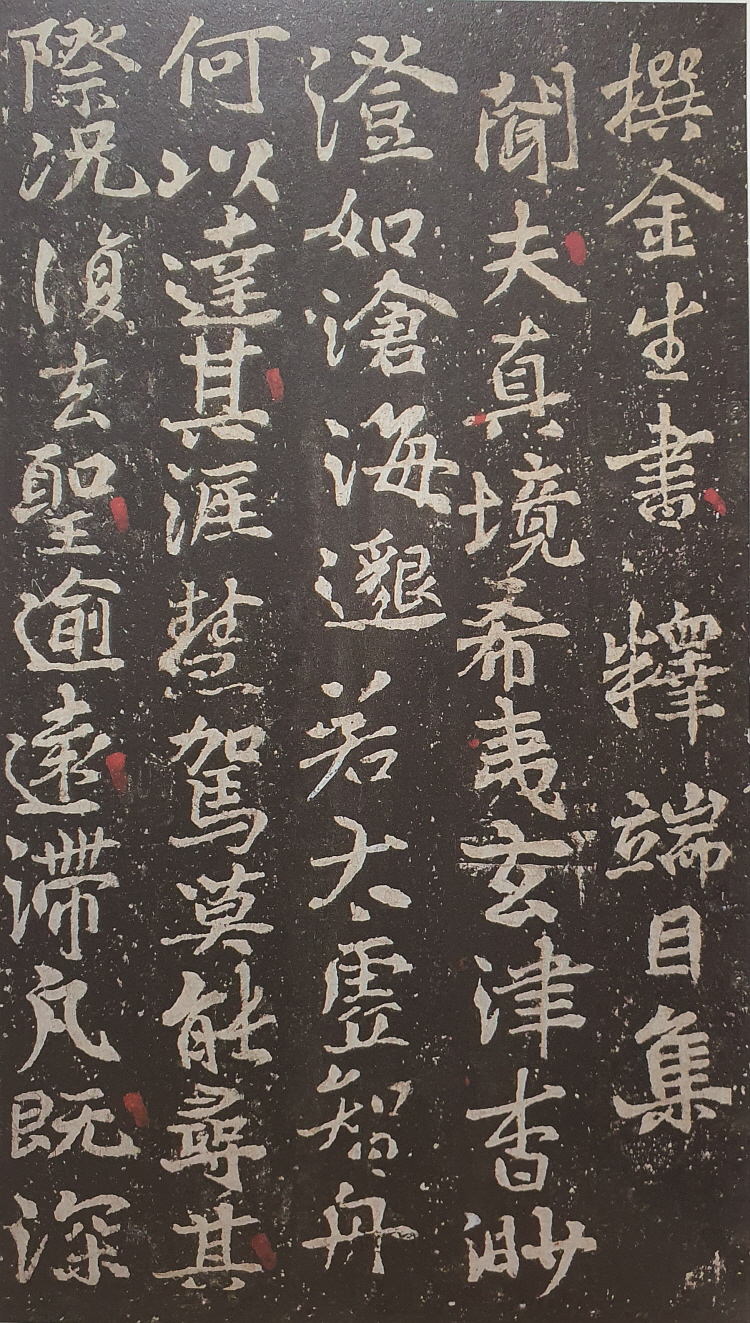 撰金生書釋端目集
聞夫真境希夷玄津杳渺
澄如滄海邈若太虛智舟
何以達其涯慧駕莫能尋其
際況復去聖逾遠滯凡既深